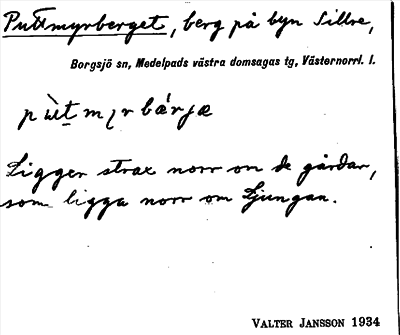 Puttmyrberget, berg på byn Sillre,
Borgsjö sn, Medelpads västra domsagas tg, Västernorrl. l.
Ligger strax norr om de gårdar,
som ligga norr om Ljungan.
VALTER JANSSON 1934